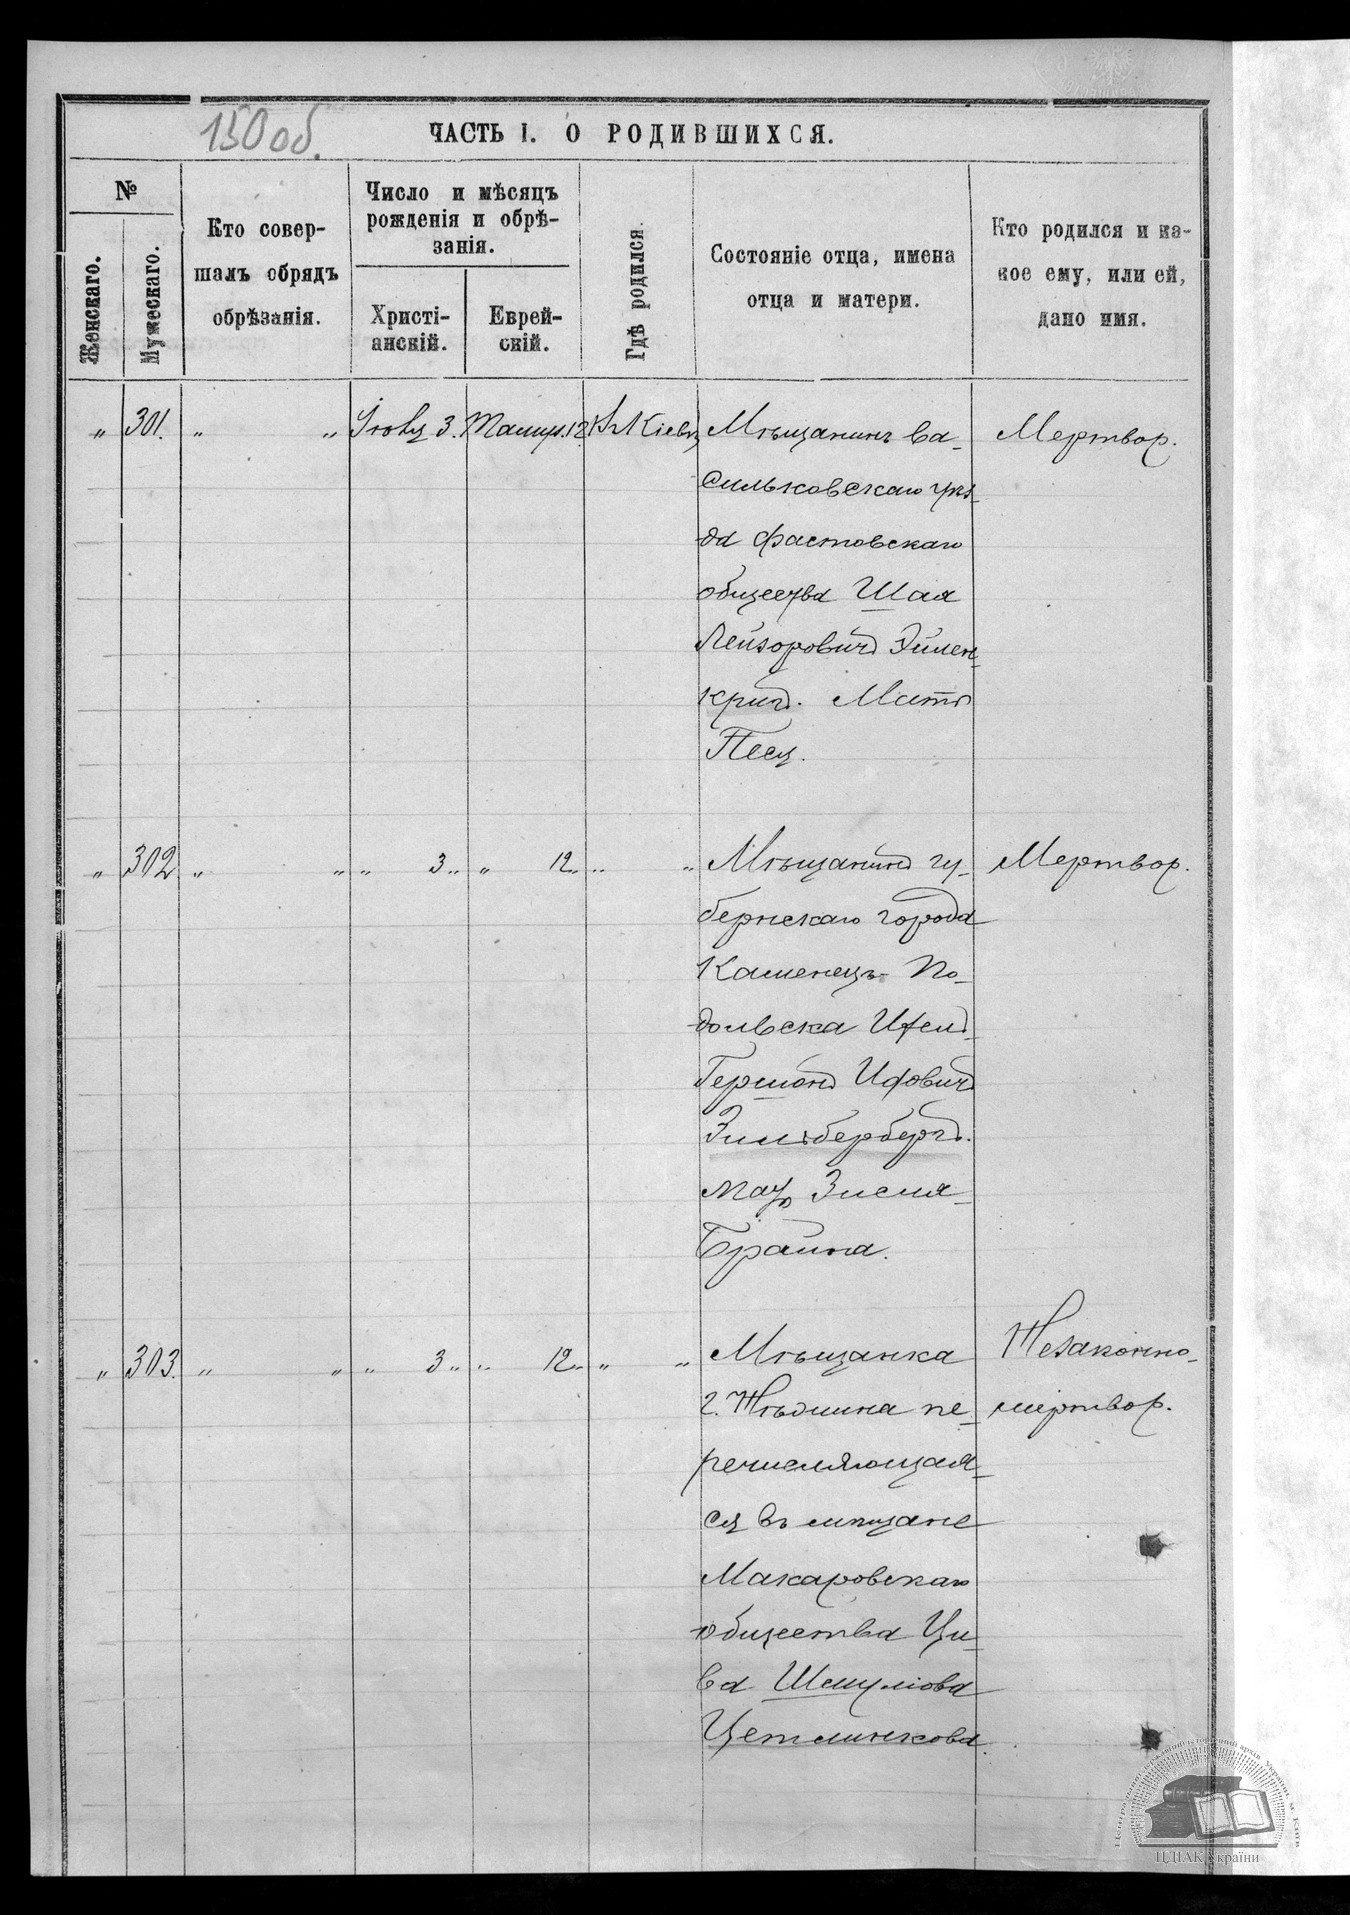 150 об.
ЧАСТЬ I. О РОДИВШИХСЯ.
№
Женскаго.
Мужескаго.
Кто совер-
шалъ обрядъ
обрѣзанія.
Число и мѣсяцъ
рожденія и обрѣ-
занія.
Христі-
анскій.
Еврей-
скій.
Гдѣ родился.
Состояніе отца, имена
отца и матери.
Кто родился и ка-
кое ему, или ей,
дано имя.
„ 301. „ „ Іюля 3. Тамуз. 12 Въ Кіевѣ Мѣщанинъ Ва- Мертвор.
сильковскаго уѣз-
да Фастовскаго
общества Шая
Лейзоровичъ Эйлен-
кригъ. Мать
Песя.
„ 302 „ „ „ 3 „ „ 12 „ „ „ Мѣщанинъ гу- Мертвор.
бернскаго города
Каменецъ-По-
дольска
Гершонъ
Зильбербергъ.
мать Зисля-
Брайна.
„ 303. „ „ „ 3 „ „ 12 „ „ „ Мѣщанка Незаконно-
г. Нѣжина пе- мертвор.
речисляющая-
ся въ мѣщане
Макаровскаго
общества Ци-
ва Шмулова
Цетлинкова.
ЦДІАК України